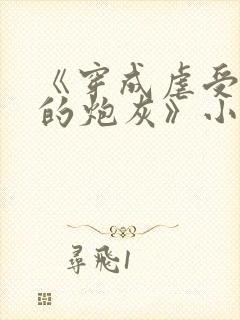 《穿成虐受
的炮灰》小
尋飛1